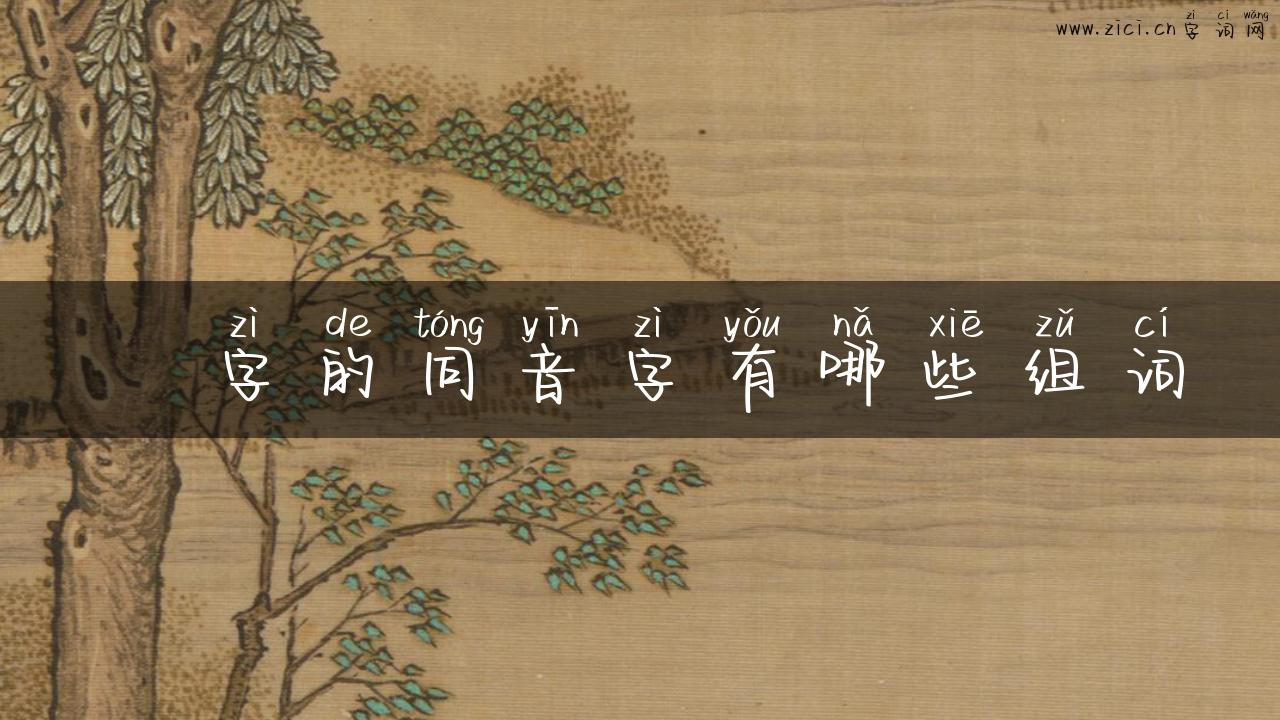 zì cí wǎng
www.zici.cn 字词网
zì de tóng yīn zì yǒu nǎ xiē zǔ cí
字的同音字有哪些组词